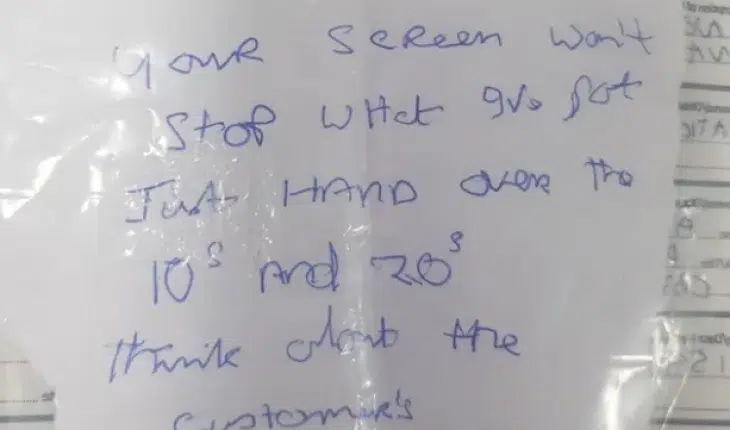 your SCREEN won't
STOP WHat I've got
Just HAND over the
10s AND 20s
think about the
customer's